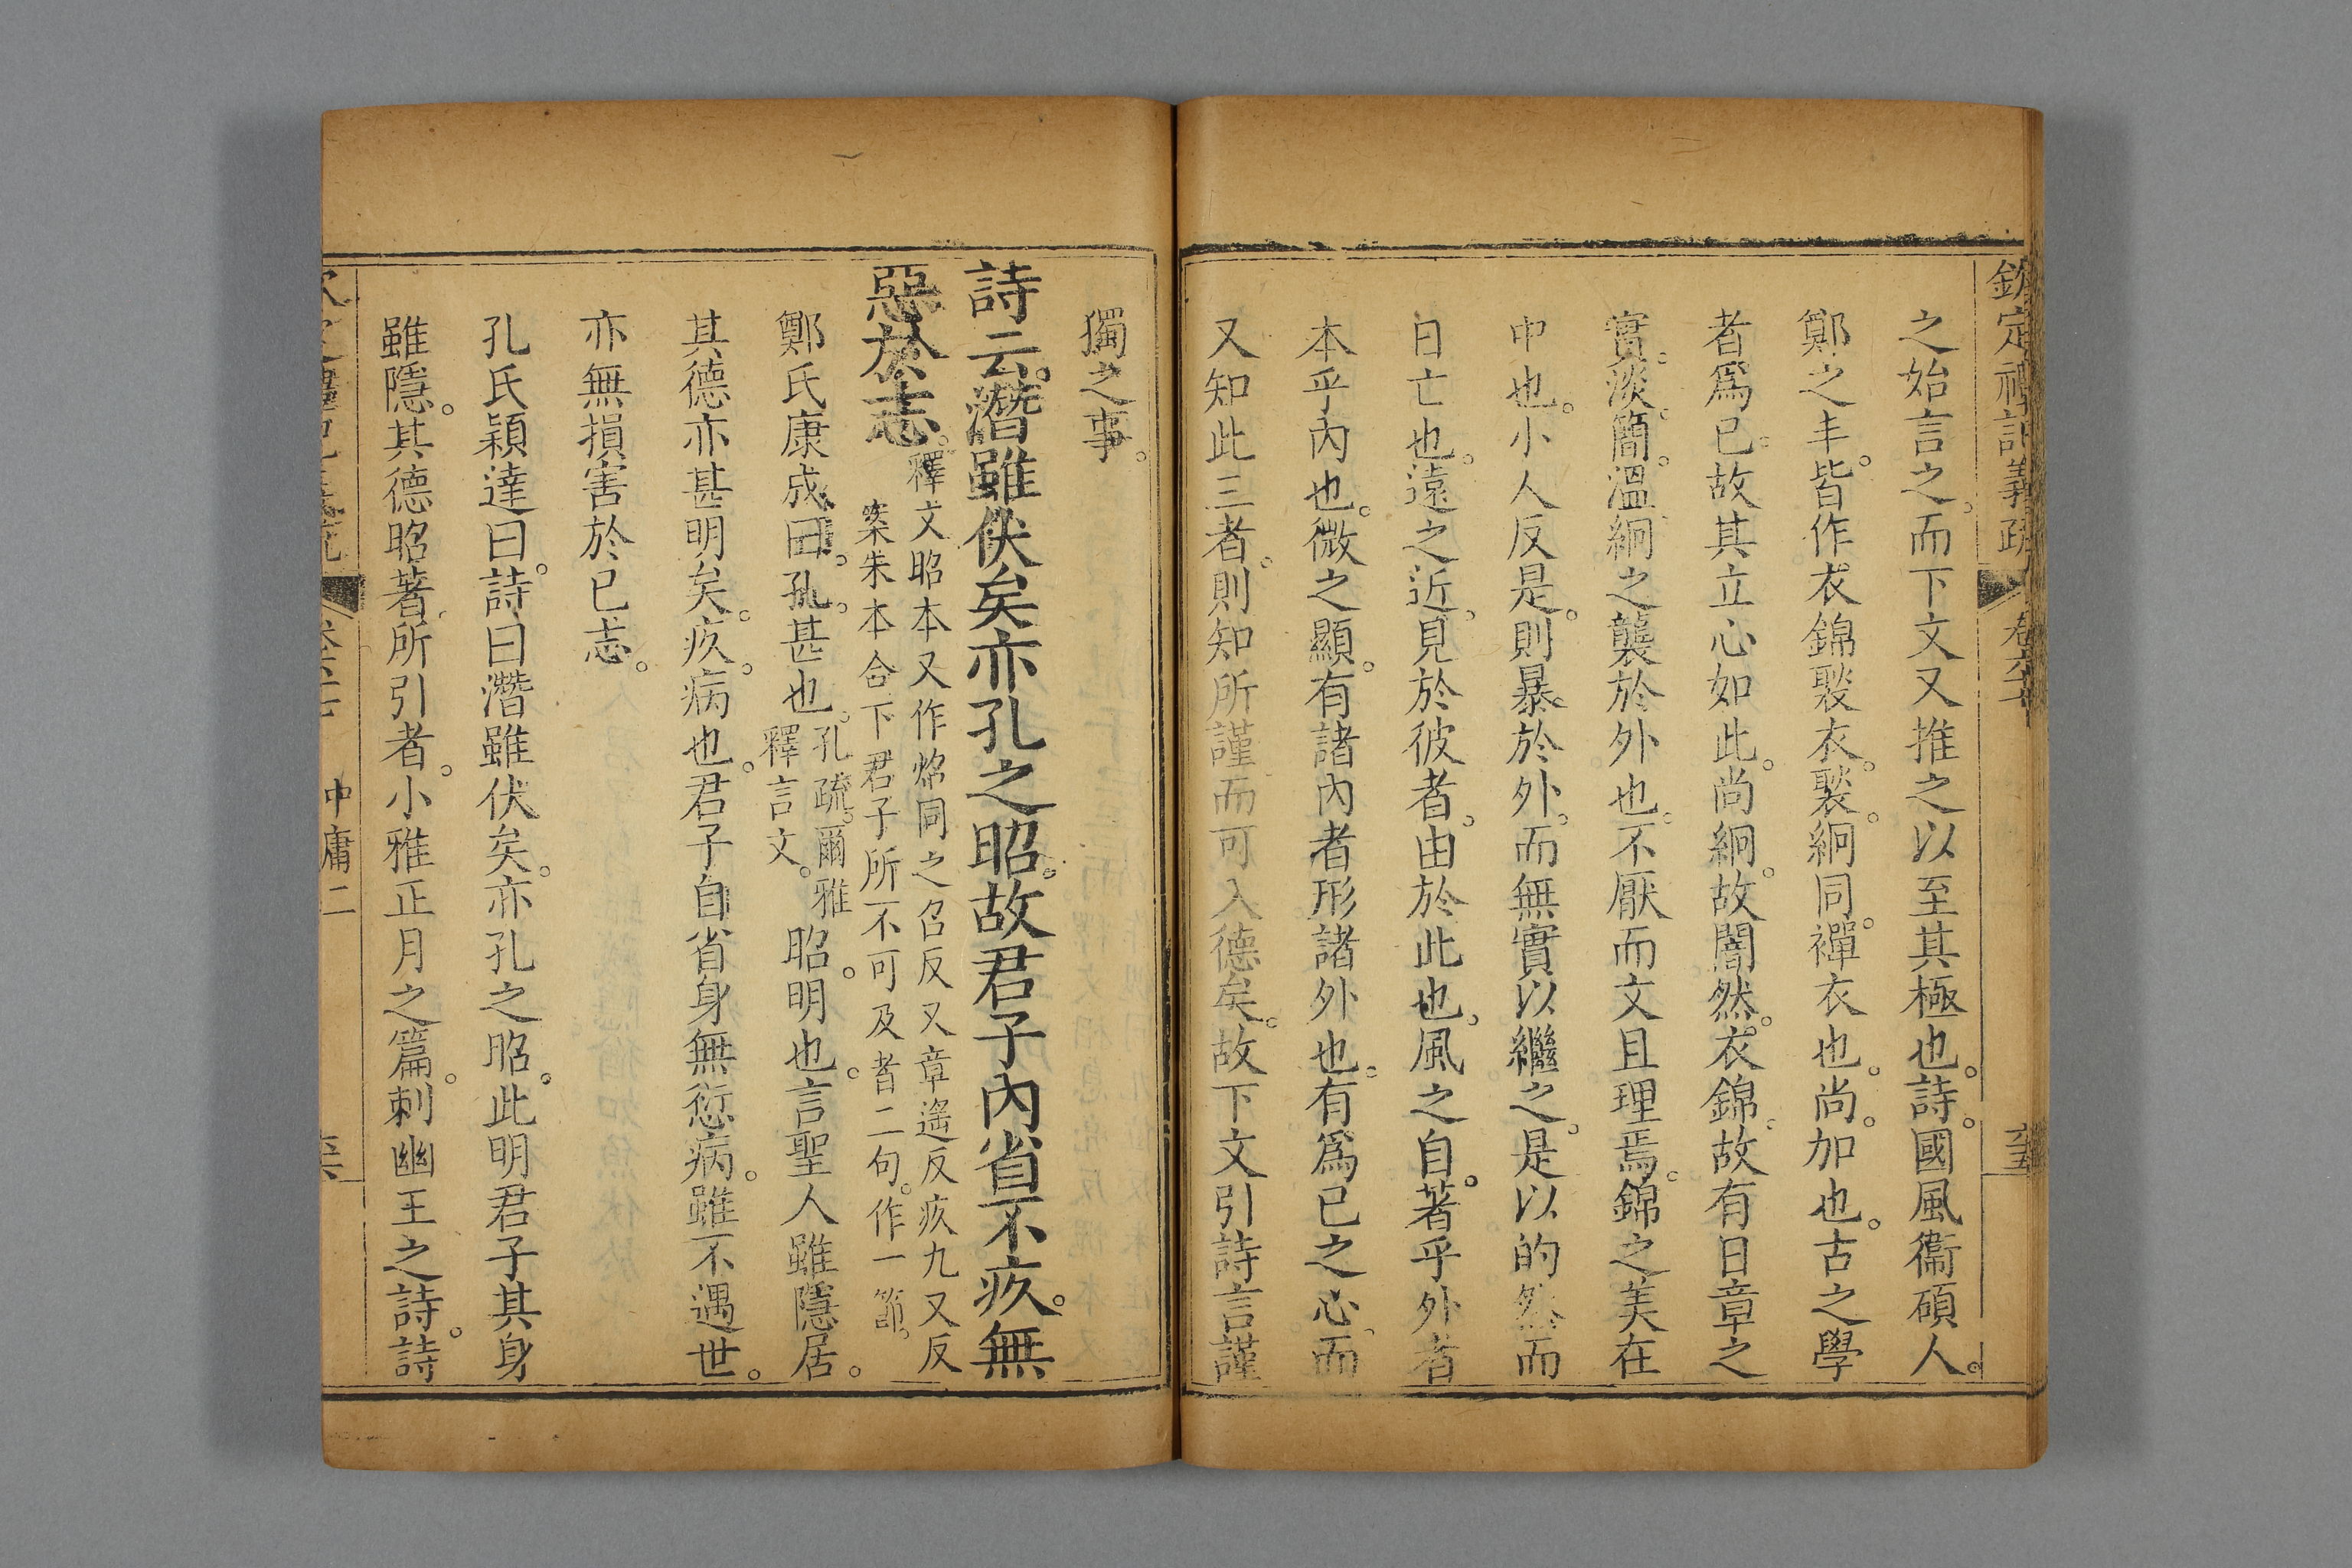 欽定禮記義疏
之始言之。而下文又推之以至其極也。詩。國風衞碩人。
鄭之丰。皆作衣錦褧衣。褧。絅同。襌衣也。尚。加也。古之學
者爲已。故其立心如此。尚絅。故闇然。衣錦。故有日章之
實。淡。簡。溫。絅之襲於外也。不厭而文且理焉。錦之美在
中也。小人反是。則暴於外。而無實以繼之。是以的然而
日亡也。遠之近。見於彼者。由於此也。風之自。著乎外者
本乎內也。微之顯。有諸內者形諸外也。有爲已之心。而
又知此三者。則知所謹而可入德矣。故下文引詩言謹
獨之事。
詩云。潛雖伏矣亦孔之昭。故君子內省不疚。無
惡於志。
釋文昭本又作炤同之召反又章遙反疚九又反
案朱本合下君子所不可及者二句。作一節。
鄭氏康成曰。孔。甚也。
孔疏。爾雅
釋言文。
昭。明也。言聖人雖隱居。
其德亦甚明矣。疚。病也。君子自省身無愆病。雖不遇世。
亦無損害於已志。
孔氏穎達曰。詩曰潛雖伏矣。亦孔之昭。此明君子其身
雖隱。其德昭著。所引者。小雅正月之篇。刺幽王之詩。詩
中庸二